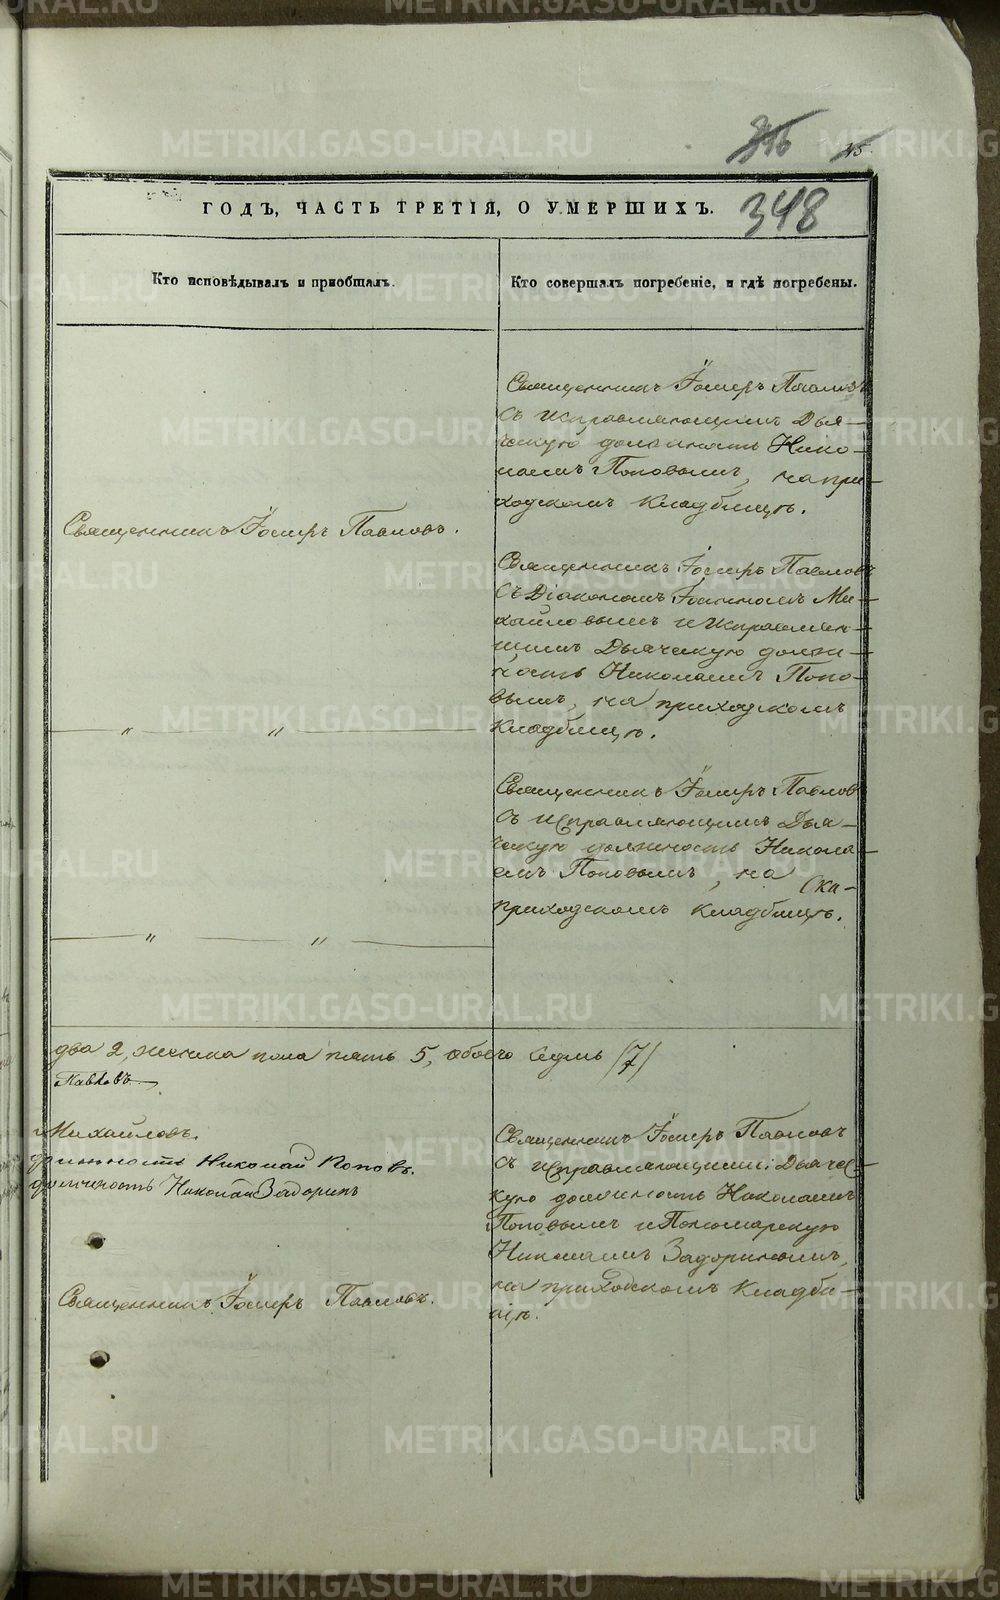 45
348
ГОДЪ, ЧАСТЬ ТРЕТІЯ, О УМЕРШИХЪ.
Кто исповѣдывалъ и пріобщалъ.
Кто совершалъ погребеніе, и гдѣ погребены.
Священникъ Іосифъ Павловъ
съ исправляющимъ Дья-
ческую должность Нико-
лаемъ Поповымъ, на при-
ходскомъ кладбищѣ.
Священникъ Іосифъ Павловъ.
Священникъ Іосифъ Павловъ
съ Діакономъ Іоанномъ Ми-
хайловымъ и исправляю-
щимъ Дьяческую долж-
ность Николаемъ Попо-
вымъ, на приходскомъ
кладбищѣ.
" "
Священникъ Іосифъ Павловъ
съ исправляющимъ Дья-
ческую должность Никола-
емъ Поповымъ, на
приходскомъ кладбищѣ.
" "
два 2, женска пола пять 5, обоего седмь (7)
Павловъ
Михайловъ.
должность Николай Поповъ.
должность Николай Задоринъ
Священникъ Іосифъ Павловъ
съ исправляющими Дьячес-
кую должность Николаемъ
Поповымъ и Пономарскую
Николаемъ Задоринымъ,
на приходскомъ кладби-
щѣ.
Священникъ Іосифъ Павловъ.
METRIKI.GASO-URAL.RU